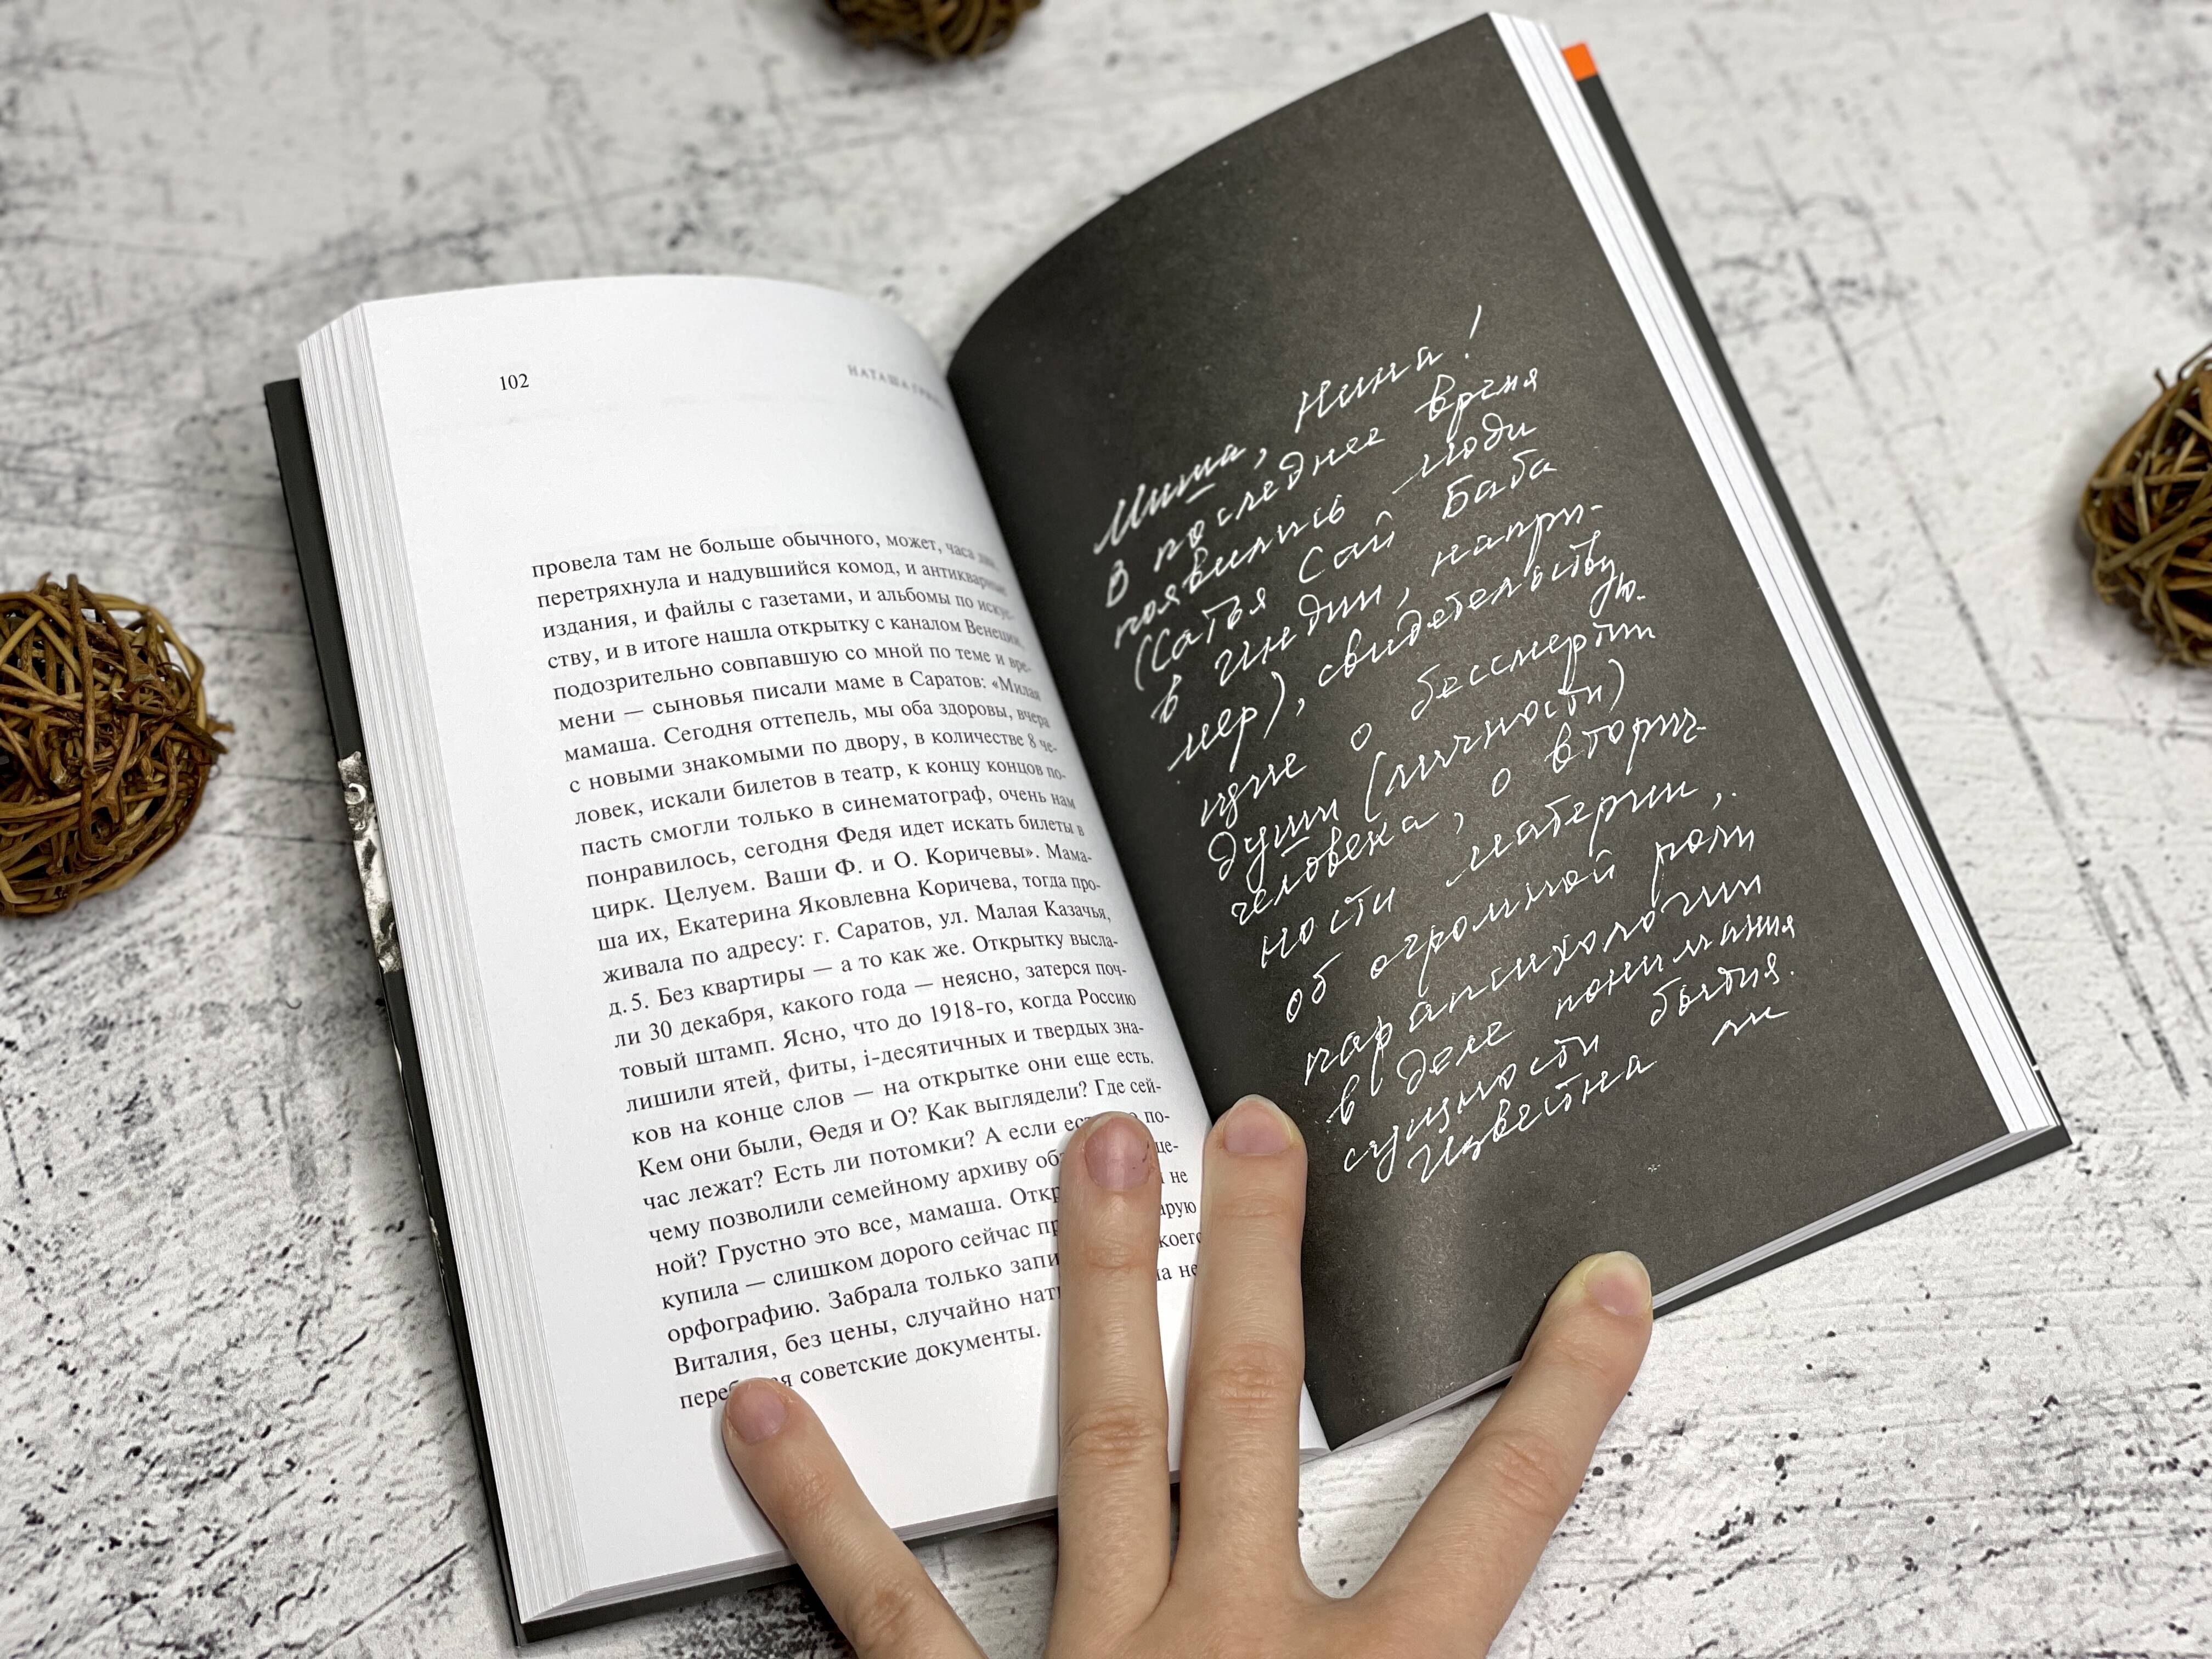 102
НАТАША
провела там не больше обычного, может, часа
перетряхнула и надувшийся комод, и антикварные
издания, и файлы с газетами, и альбомы по искус-
ству, и в итоге нашла открытку с каналом Венеции,
подозрительно совпавшую со мной по теме и вре-
мени — сыновья писали маме в Саратов: «Милая
мамаша. Сегодня оттепель, мы оба здоровы, вчера
с новыми знакомыми по двору, в количестве 8 че-
ловек, искали билетов в театр, к концу концов по-
пасть смогли только в синематограф, очень нам
понравилось, сегодня Федя идет искать билеты в
цирк. Целуем. Ваши Ф. и О. Коричевы». Мама-
ша их, Екатерина Яковлевна Коричева, тогда про-
живала по адресу: г. Саратов, ул. Малая Казачья,
д. 5. Без квартиры — а то как же. Открытку высла-
ли 30 декабря, какого года — неясно, затерся поч-
товый штамп. Ясно, что до 1918-го, когда Россию
лишили ятей, фиты, i-десятичных и твердых зна-
ков на конце слов — на открытке они еще есть.
Кем они были, Ѳедя и О? Как выглядели? Где сей-
час лежат? Есть ли потомки? А если по-
чему позволили семейному архиву
ной? Грустно это все, мамаша. не
купила — слишком дорого сейчас
орфографию. Забрала только
Виталия, без цены, случайно не
советские документы.
Миша, Нина!
В последнее время
появились люди
(Сатья Саи Баба
в Индии, напри-
мер), свидетельству
ю-
щие о бессмертии
души (личности)
человека, о вторич-
ности материи,
об огромной роли
парапсихологии
в деле понимания
сущности бытия.
Известна ли